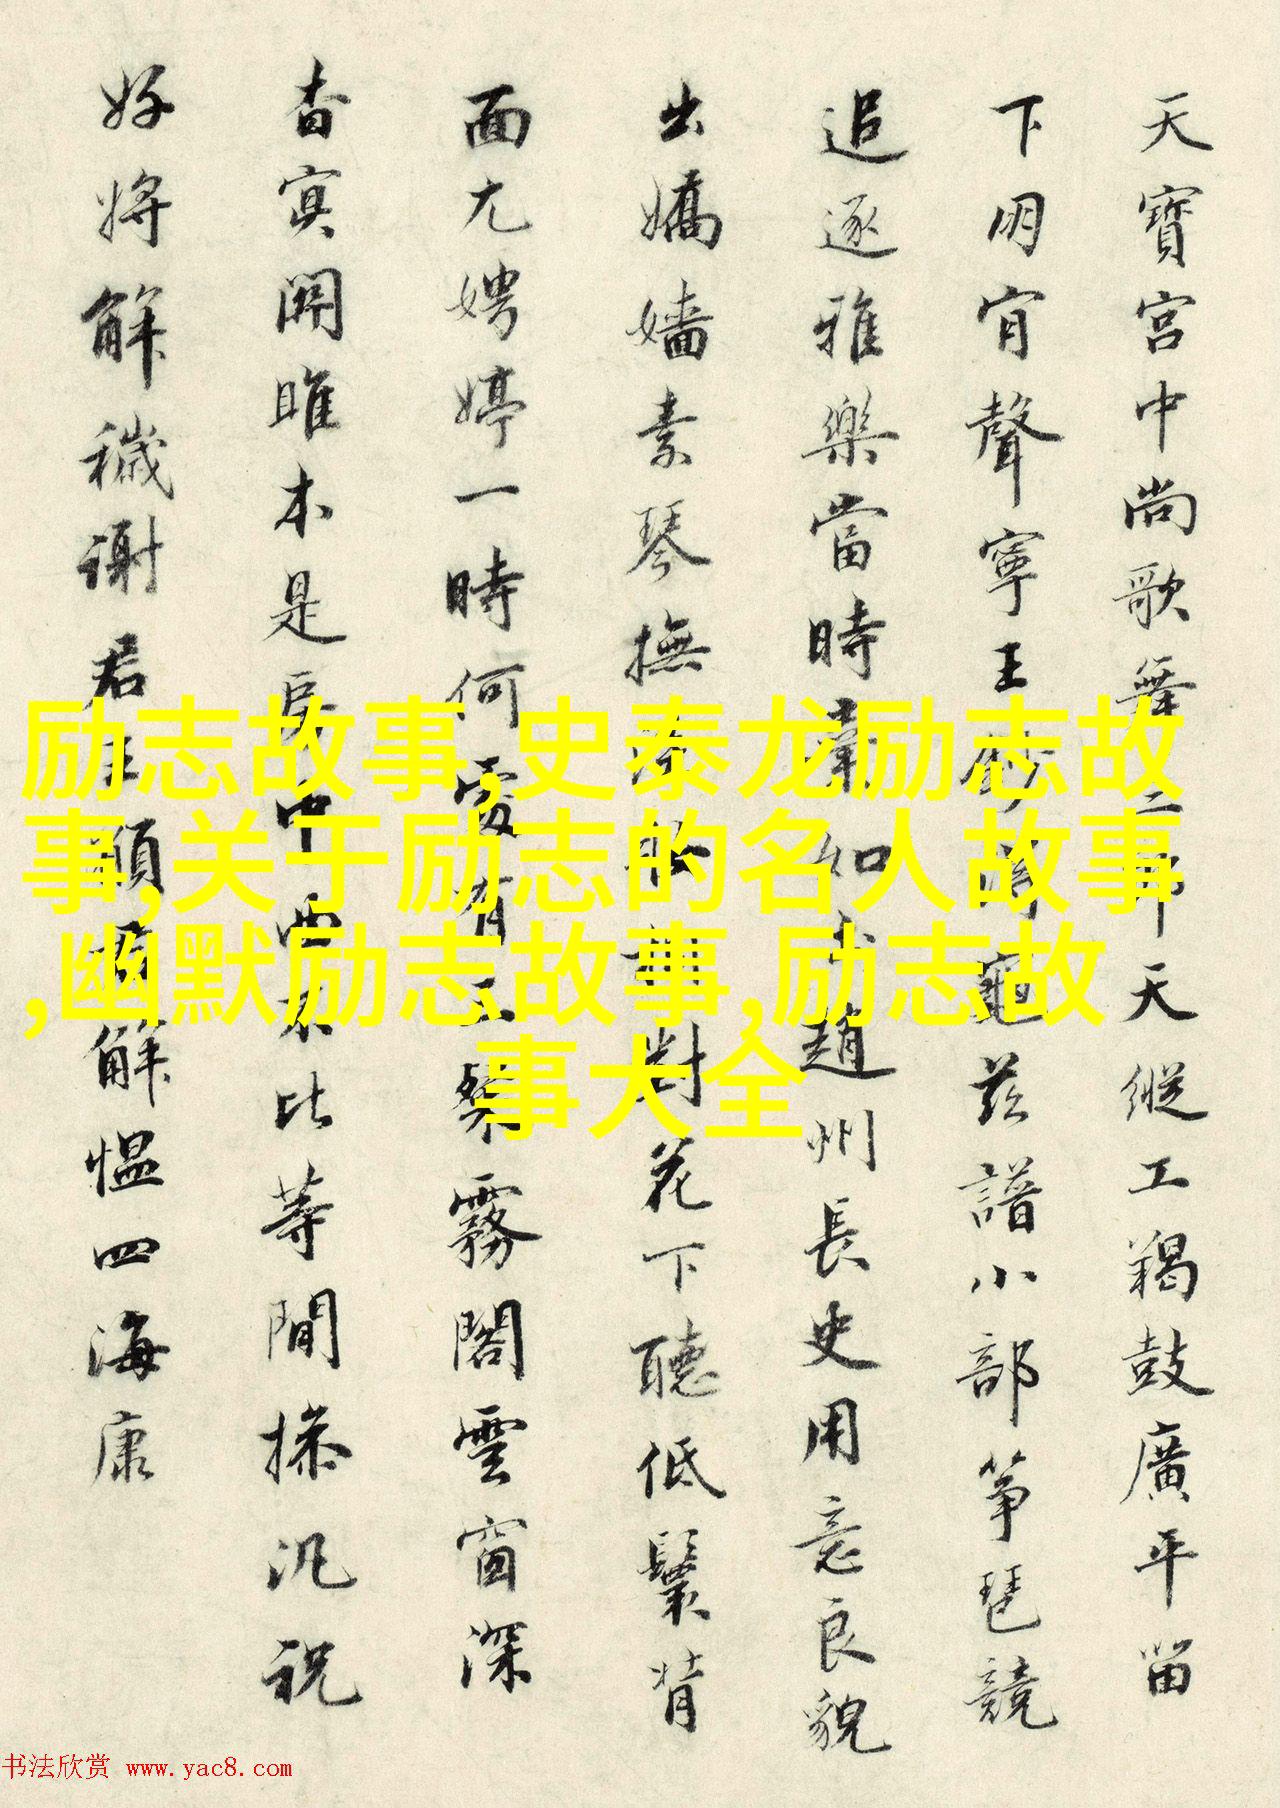 天寶宮中尚歌舞三郎天縱工羯鼓廣平留
下明宵聲寧王龜茲譜小部箏琵競
追逐雅樂當時棄如土趙州長史用意良貌
出嬌嬙素琴撫對花下聽低鬟背
面尤娉婷一時何處有霧閣雲窗深
杳冥關雎本是房中曲不比等閒操汎祝
好將解穢謝君王願解愠四海康
励志故事,史泰龙励志故
事,关于励志的名人故事
,幽默励志故事,励志故
事大全
书法欣赏 www.yac8.com